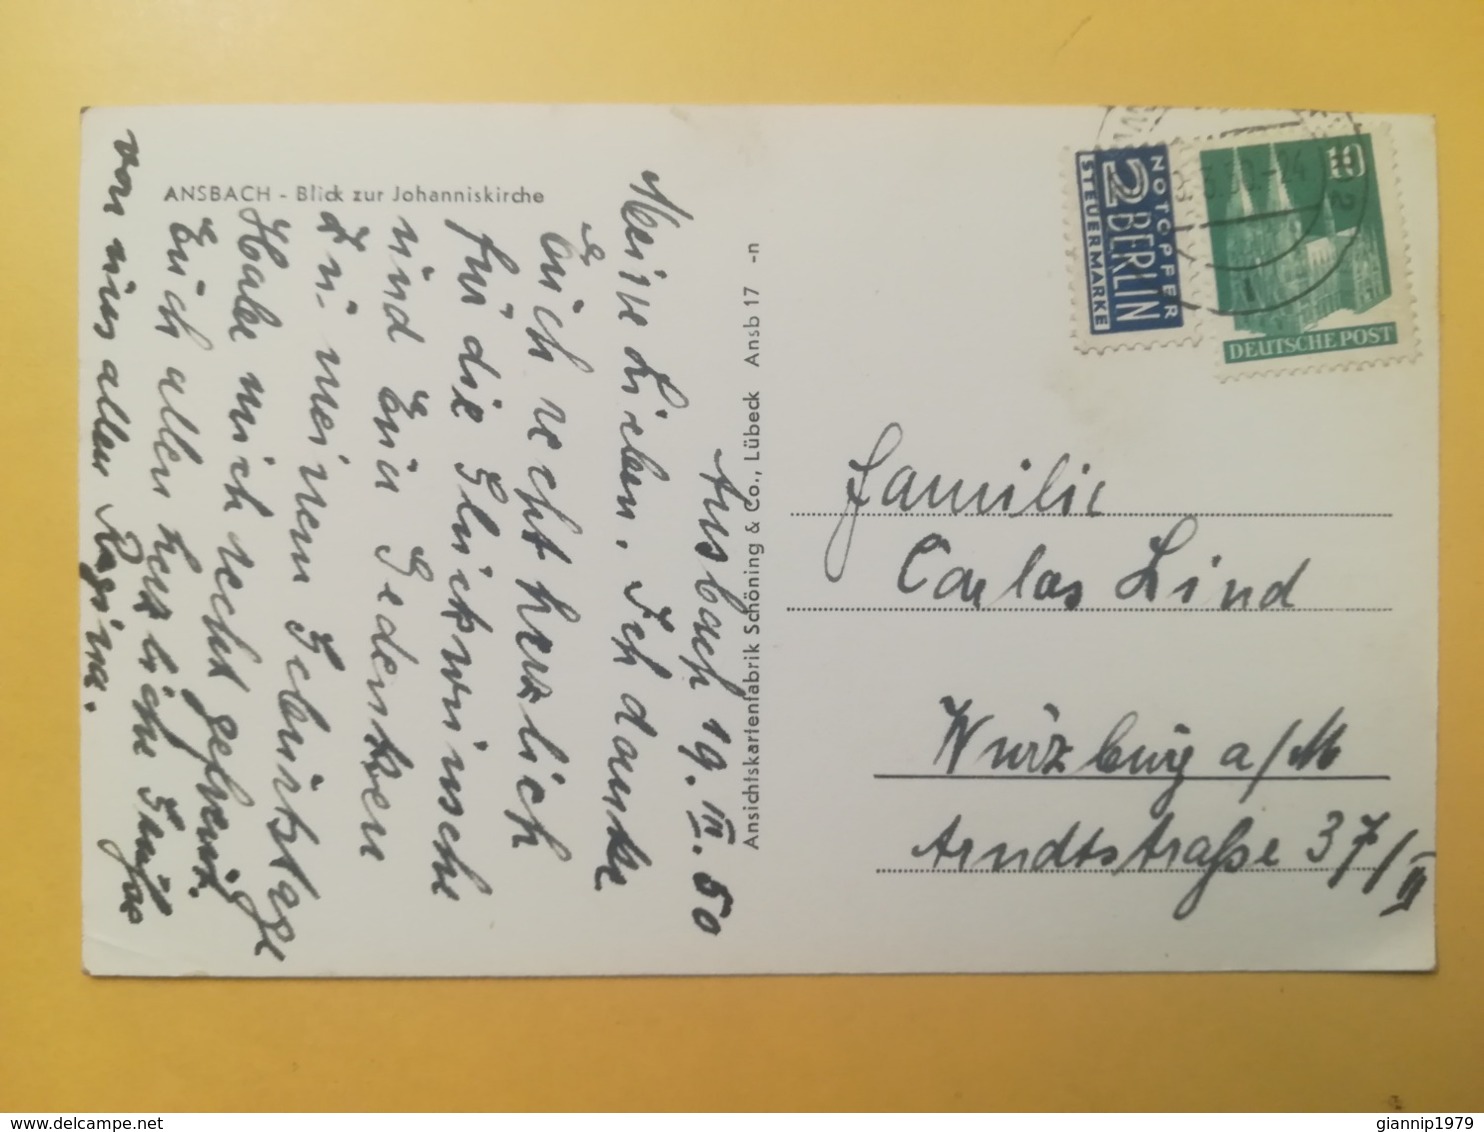 ANSBACH - Blick zur Johanniskirche
Ansbach 19. III. 50
Meine Lieben. Ich danke
Euch recht herzlich
für die Glückwünsche
und Eüer Gedenken
zu meinem Geburtstage
Habe mich recht gefreut.
Euch allen herzliche Grüße
von uns allen Regina.
Ansichtskartenfabrik Schöning & Co., Lübeck Ansb 17 -n
NOTOPFER
2 BERLIN
STEUERMARKE
10
DEUTSCHE POST
Familie
Carlos Lind
Würzburg a/M
Arndtstraße 37/III
delcampe.net
giannip1979